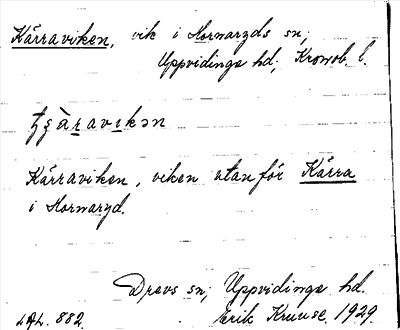 Kärraviken, vik i Hornaryds sn;
Uppvidinge hd; Kronob. l.
tʂàravikən
Kärraviken, viken utanför Kärra
i Hornaryd.
Drevs sn; Uppvidinge hd.
LAL. 882. Erik Kruuse. 1929